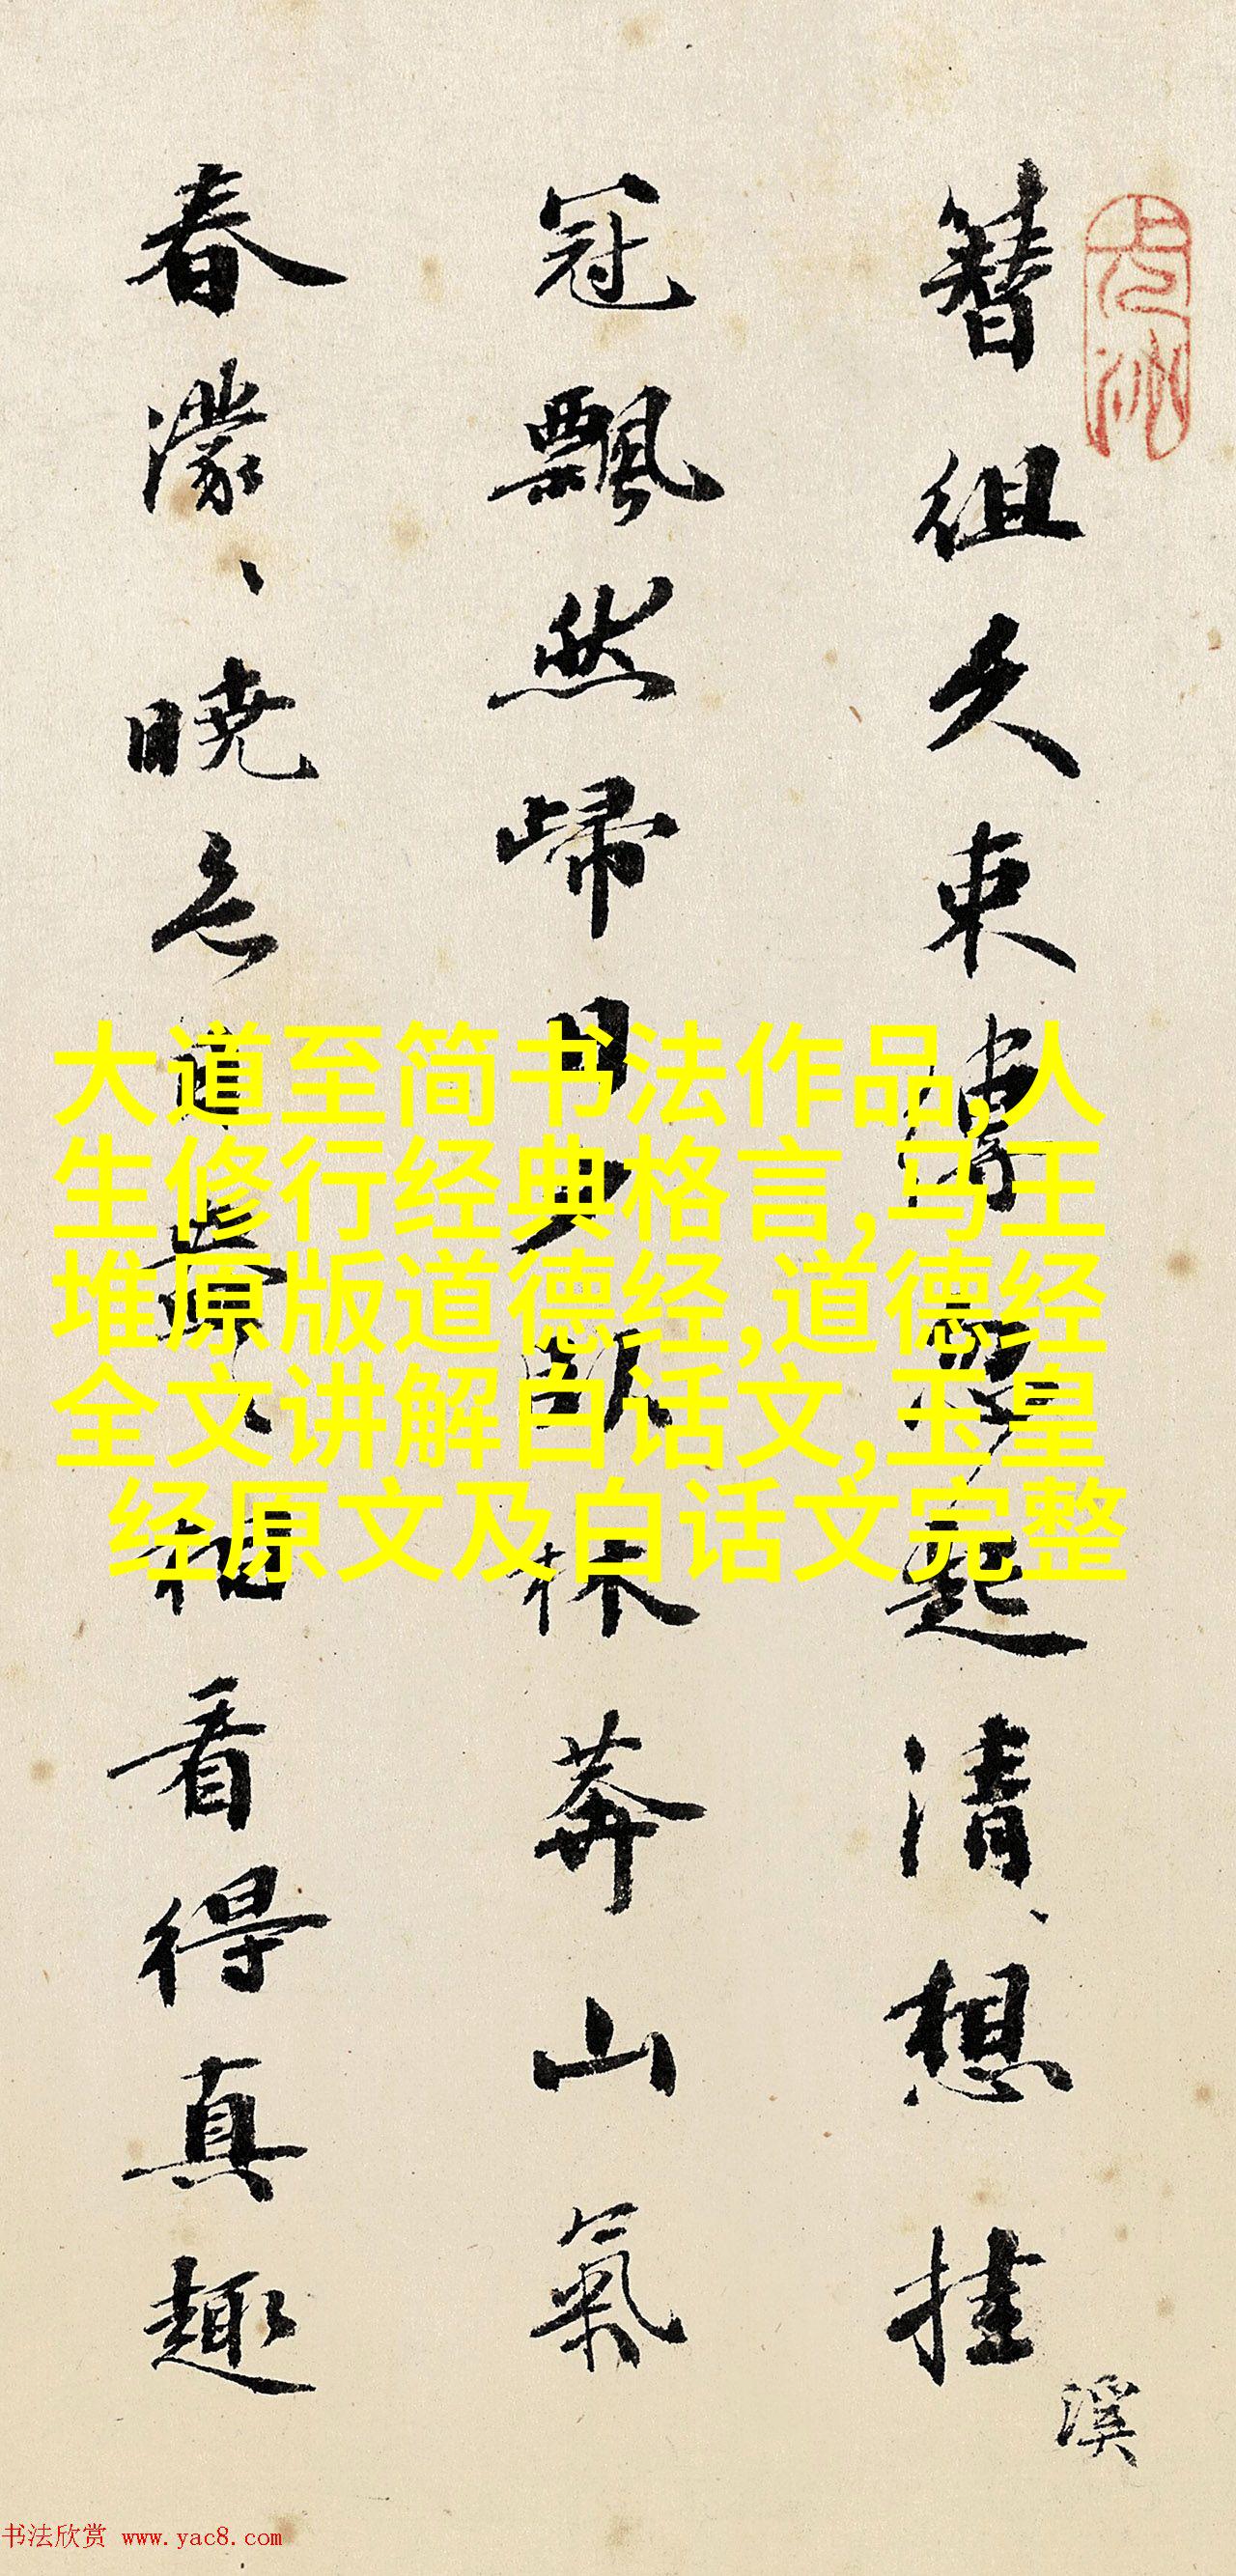 簪組久束縛夢起清、想挂
冠飄然歸日夕臥林莽山氣
春濛、曉色連
看得真趣
溪
大道至简书法作品,人
生修行经典格言,马王
堆原版道德经,道德经
全文讲解白话文,玉皇
经原文及白话文完整
书法欣赏 www.yac8.com